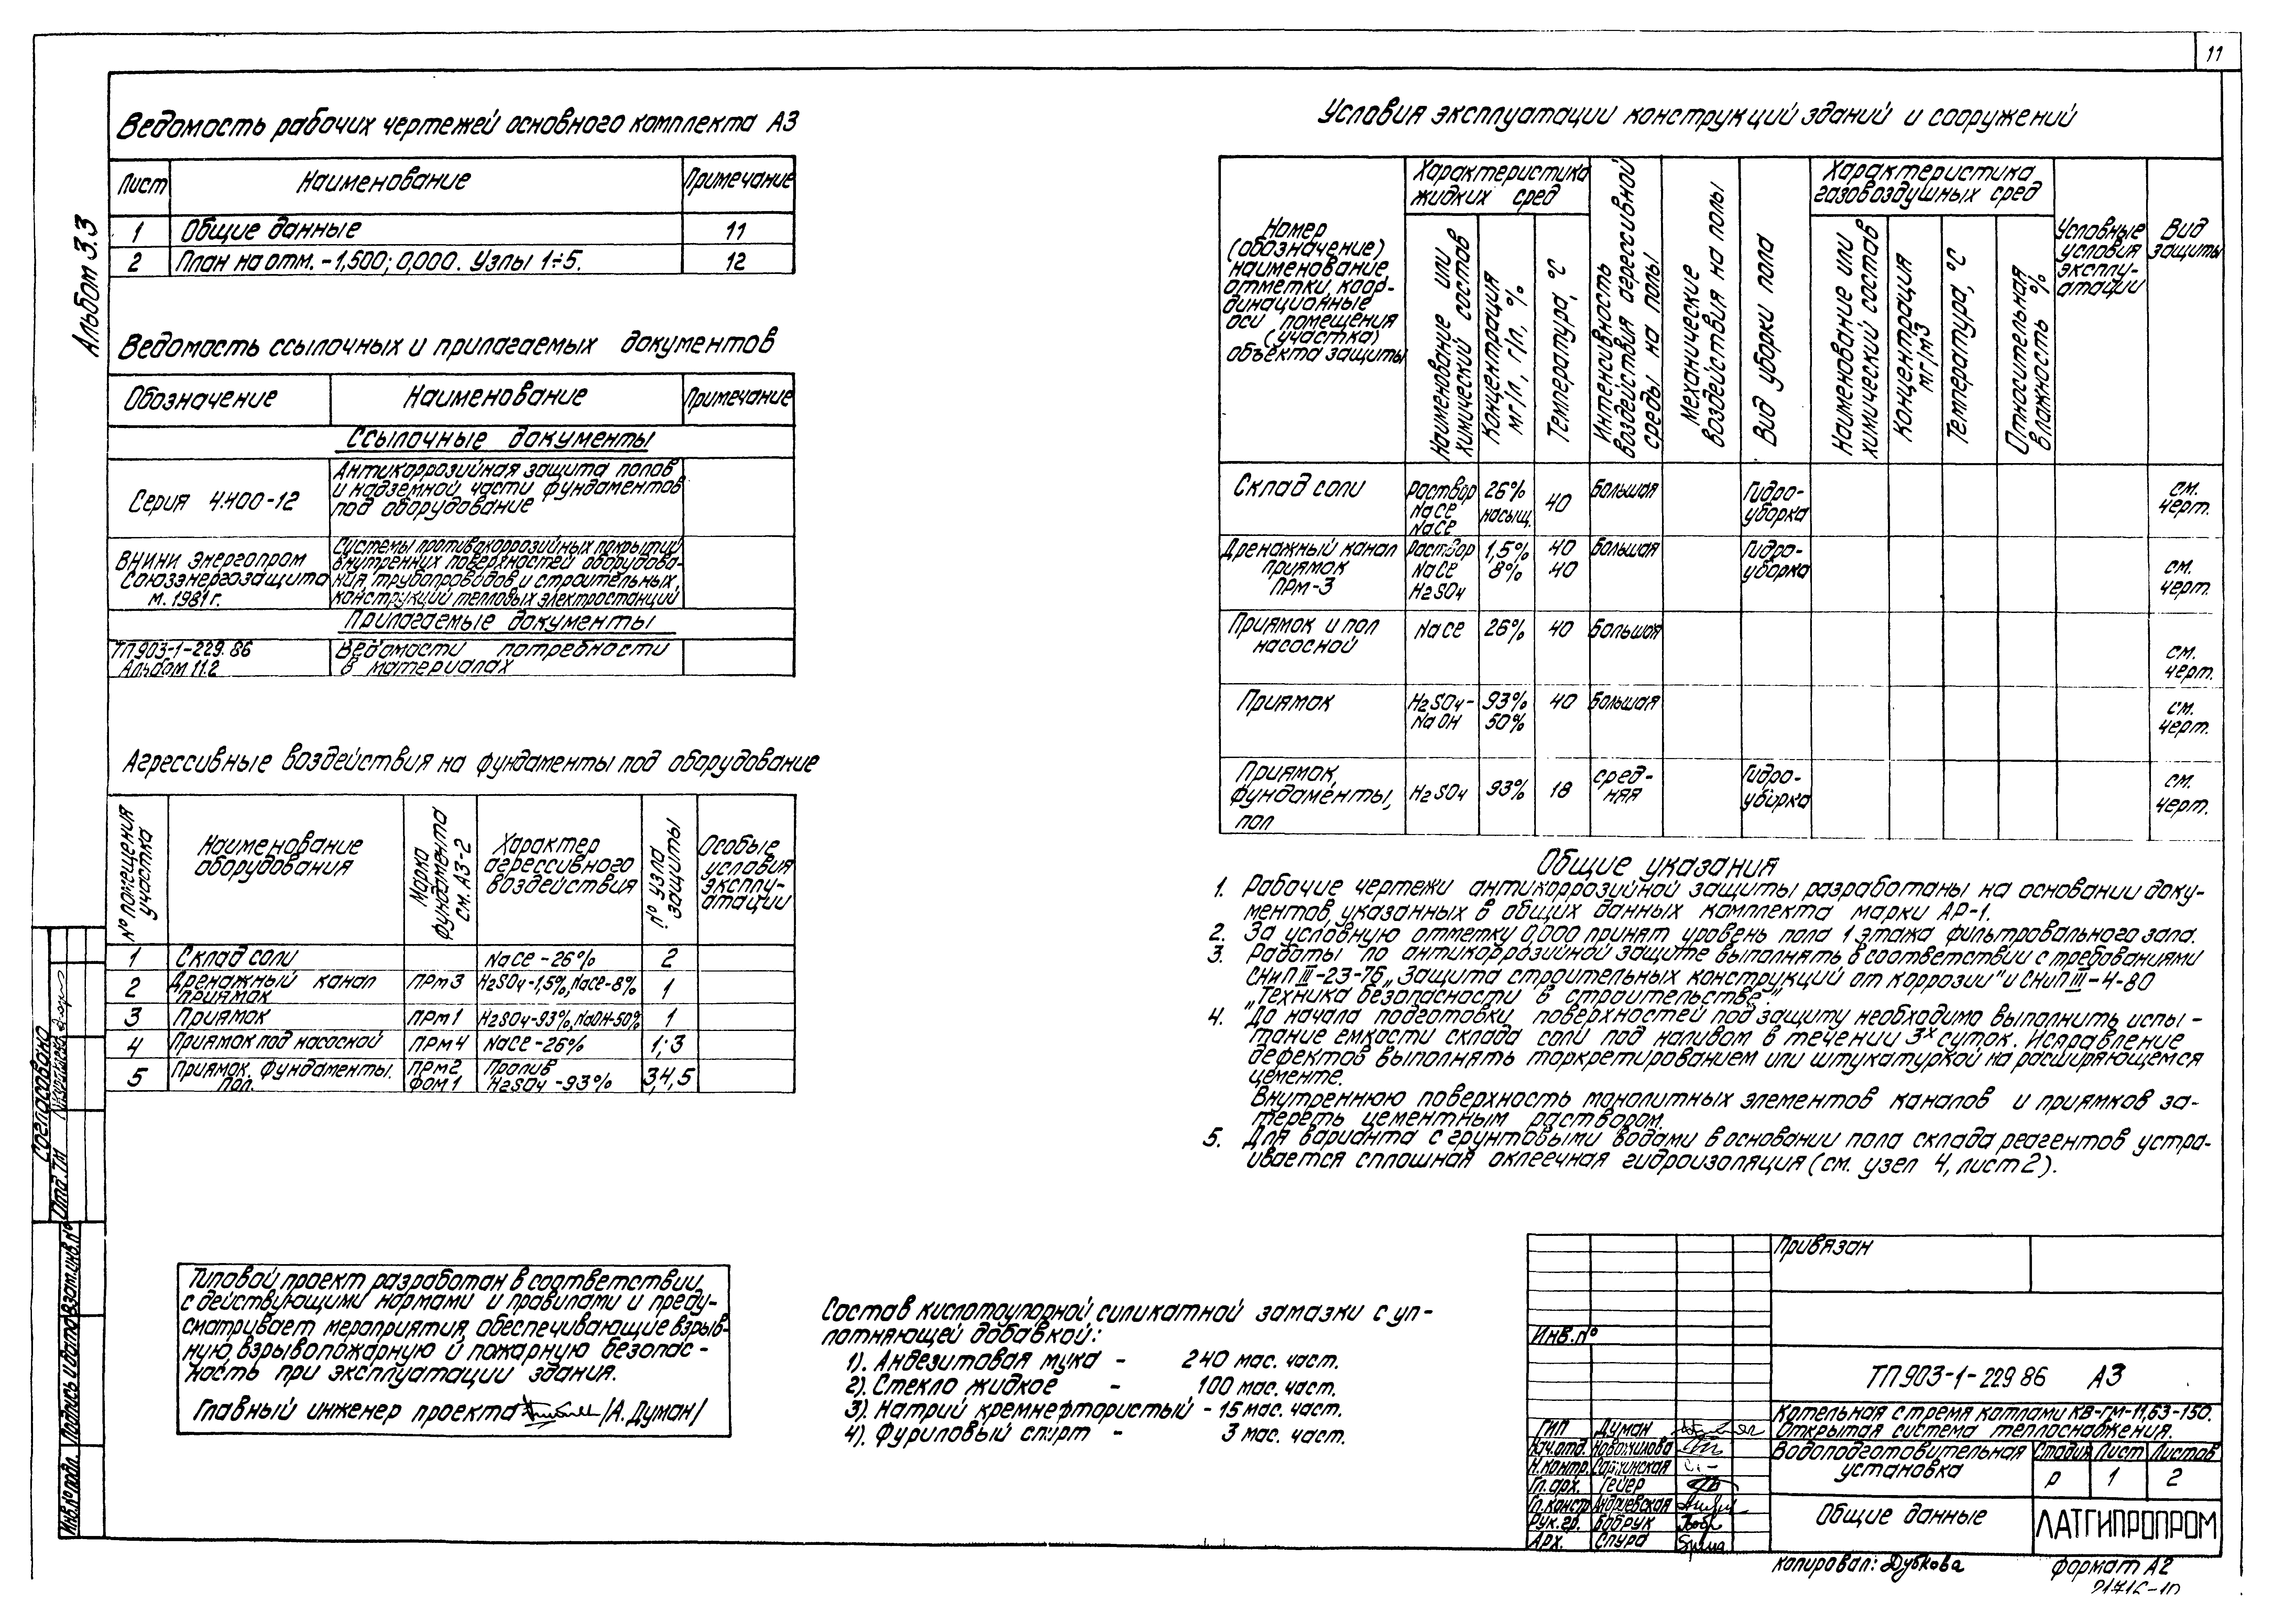 11
Альбом 3.3
Ведомость рабочих чертежей основного комплекта АЗ
Лист Наименование Примечание
1 Общие данные 11
2 План на отм. -1,500; 0,000. Узлы 1÷5. 12
Ведомость ссылочных и прилагаемых документов
Обозначение Наименование Примечание
Ссылочные документы
Серия 4.400-12 Антикоррозийная защита полов
и надземной части фундаментов
под оборудование
ВНИПИ Энергопром
Союзэнергозащита
м. 1981г.
Системы противокоррозийных покрытий
внутренних поверхностей оборудова-
ния, трубопроводов и строительных
конструкций тепловых электростанций
Прилагаемые документы
ТП 903-1-229.86
Альбом 11.2
Ведомости потребности
в материалах
Агрессивные воздействия на фундаменты под оборудование
№ помещения участка
Наименование оборудования
Марка фундамента см. АЗ-2
Характер агрессивного воздействия
№ узла защиты
Особые условия эксплу-
атации
1 Склад соли NaCl - 26% 2
2 Дренажный канал приямок ПРм3 H2SO4-1,5%, NaCl-8% 1
3 Приямок ПРм1 H2SO4-93%, NaOH-50% 1
4 Приямок под насосной ПРм4 NaCl-26% 1; 3
5 Приямок, фундаменты. Пол. ПРм2 ФОм1 Пролив H2SO4 -93% 3,4,5
Типовой проект разработан в соответствии
с действующими нормами и правилами и преду-
сматривает мероприятия, обеспечивающие взрыв-
ную, взрывопожарную и пожарную безопас-
ность при эксплуатации здания.
Главный инженер проекта /А. Думан/
Состав кислотоупорной силикатной замазки с уп-
лотняющей добавкой:
1). Андезитовая мука - 240 мас. част.
2). Стекло жидкое - 100 мас. част.
3). Натрий кремнефтористый - 15 мас. част.
4). Фуриловый спирт - 3 мас. част.
Условия эксплуатации конструкций зданий и сооружений
Номер
(обозначение)
наименование
отметки, коор-
динационные
оси помещения
(участка)
объекта защиты
Характеристика жидких сред
Наименование или химический состав
Концентрация мг/л, г/л, %
Температура, °С
Интенсивность воздействия агрессивной среды на полы
Механические воздействия на полы
Вид уборки пола
Характеристика газовоздушных сред
Наименование или химический состав
Концентрация мг/м3
Температура, °С
Относительная влажность %
Условные условия эксплу-
атации
Вид защиты
Склад соли Раствор NaCl NaCl 26% насыщ. 40 Большая Гидро-
уборка см. черт.
Дренажный канал приямок ПРм-3 Раствор NaCl H2SO4 1,5% 8% 40 40 Большая Гидро-
уборка см. черт.
Приямок и пол насосной NaCl 26% 40 Большая см. черт.
Приямок H2SO4- NaOH 93% 50% 40 Большая см. черт.
Приямок, фундаменты, пол H2SO4 93% 18 сред-
няя Гидро-
уборка см. черт.
Общие указания
1. Рабочие чертежи антикоррозийной защиты разработаны на основании доку-
ментов, указанных в общих данных комплекта марки АР-1.
2. За условную отметку 0,000 принят уровень пола 1 этажа фильтровального зала.
3. Работы по антикоррозийной защите выполнять в соответствии с требованиями
СНиП III-23-76 „Защита строительных конструкций от коррозии" и СНиП III-4-80
„Техника безопасности в строительстве."
4. До начала подготовки поверхностей под защиту необходимо выполнить испы-
тание емкости склада соли под наливом в течении 3х суток. Исправление
дефектов выполнять торкретированием или штукатуркой на расширяющемся
цементе.
Внутреннюю поверхность монолитных элементов каналов и приямков за-
тереть цементным раствором.
5. Для варианта с грунтовыми водами в основании пола склада реагентов устра-
ивается сплошная оклеечная гидроизоляция (см. узел 4, лист 2).
Привязан
Инв. №
ТП 903-1-229.86 АЗ
Котельная с тремя котлами КВ-ГМ-11,63-150.
Открытая система теплоснабжения.
ГИП Думан
Нач.отд. Новожилова
Н.контр.
Гл.арх. Гейер
Гл.констр Андриевская
Рук.гр. Бобрук
Арх. Спура
Водоподготовительная установка
Стадия Лист Листов
Р 1 2
Общие данные
ЛАТГИПРОПРОМ
Копировал: Дубкова Формат А2
Согласовано
Отд. ТМ
Взам.инв.№
Подпись и дата
Инв.№ подл.